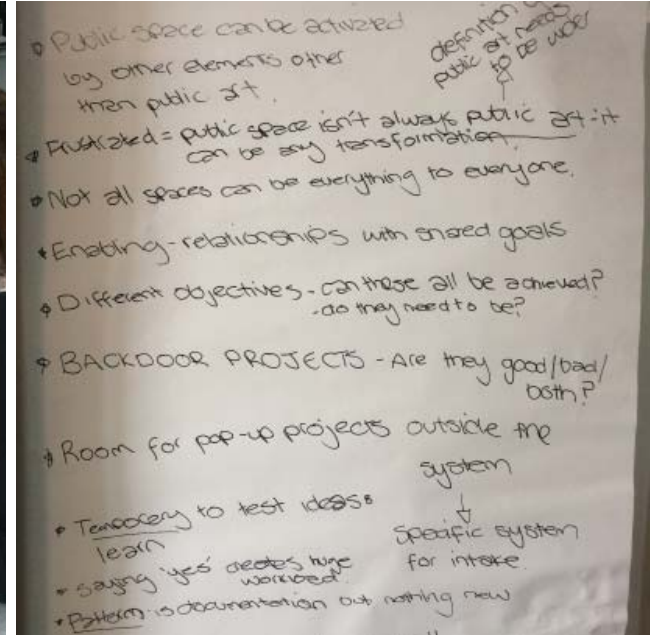 Public space can be activated
by other elements other
then public art.
definition
public art needs
to be wider
Frustrated = public space isn't always public art - it
can be any transformation.
Not all spaces can be everything to everyone.
Enabling - relationships with shared goals
Different objectives - can these all be achieved?
- do they need to be?
BACKDOOR PROJECTS - Are they good/bad/
both?
Room for pop-up projects outside the
system
Temporary to test ideas &
learn
specific system
for intake.
saying 'yes' creates huge
workload
is documentation but nothing new